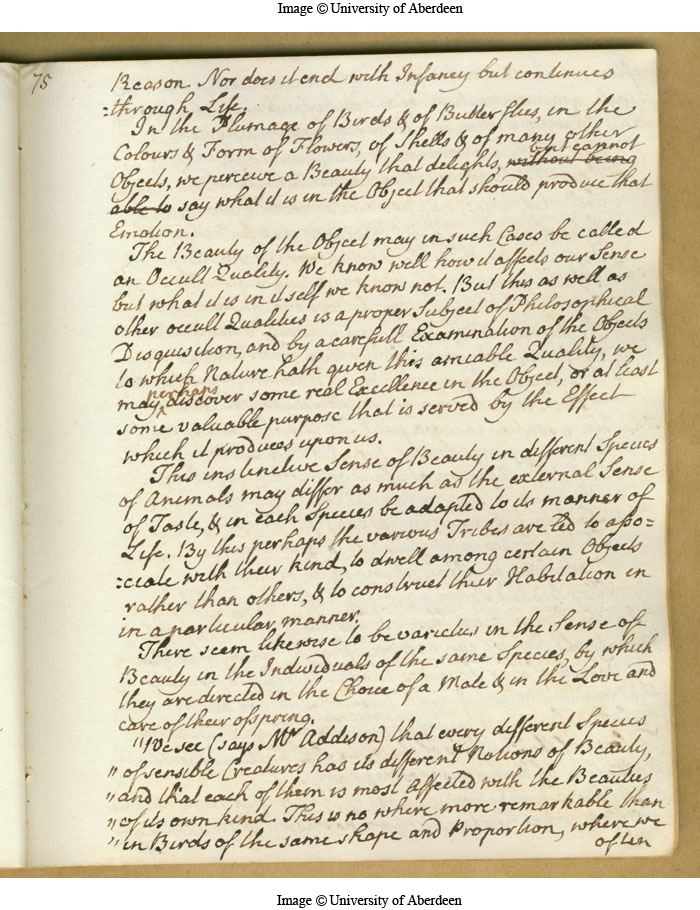 Image © University of Aberdeen
75
Reason. Nor does it end with Infancy but continues
=through Life.
In the Plumage of Birds & of Butterflies, in the
Colours & Form of Flowers, of Shells & of many other
but cannot
Objects, we perceive a Beauty that delights, without being
able to say what it is in the Object that should produce that
Emotion.
The Beauty of the Object may in such Cases be called
an Occult Quality. We know well how it affects our Sense
but what it is in itself we know not. But this as well as
other occult Qualities is a proper Subject of Philosophical
Disquisition, and by a carefull Examination of the Objects
to which Nature hath given this amiable Quality, we
perhaps
may ^ discover some real Excellence in the Object, or at least
some valuable purpose that is served by the Effect
which it produces upon us.
This instinctive Sense of Beauty in different Species
of Animals may differ as much as the external Sense
of Taste, & in each Species be adapted to its manner of
Life. By this perhaps the various Tribes are led to asso=
=ciate with their kind, to dwell among certain Objects
rather than others, & to construct their Habitation in
in a particular manner.
There seem likewise to be varieties in the Sense of
Beauty in the Individuals of the same Species, by which
they are directed in the Choice of a Mate & in the Love and
care of their ofspring.
"We see (says Mr Addison) that every different Species
" of sensible Creatures has its different Notions of Beauty,
" and that each of them is most affected with the Beauties
" of its own kind. This is no where more remarkable than
" in Birds of the same shape and Proportion, where we
often
Image © University of Aberdeen